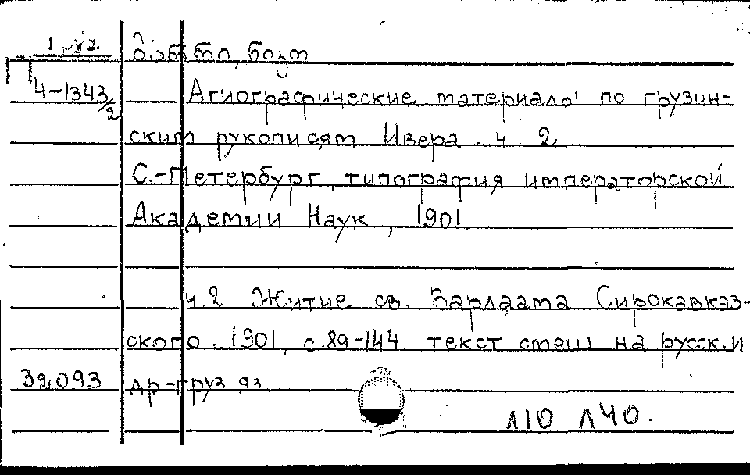 1 груз.
მარი, ნიკო
4-1343/2
Агиографические материалы по грузин-
ским рукописям Ивера. ч. 2.
С.-Петербург, типография императорской
Академии Наук, 1901.
ч. 2 Житие св. Варлаама Сирокавказ-
ского. 1901, с. 89-144 текст стат. на русск. и
39.093 др-груз яз.
Л10 Л40.